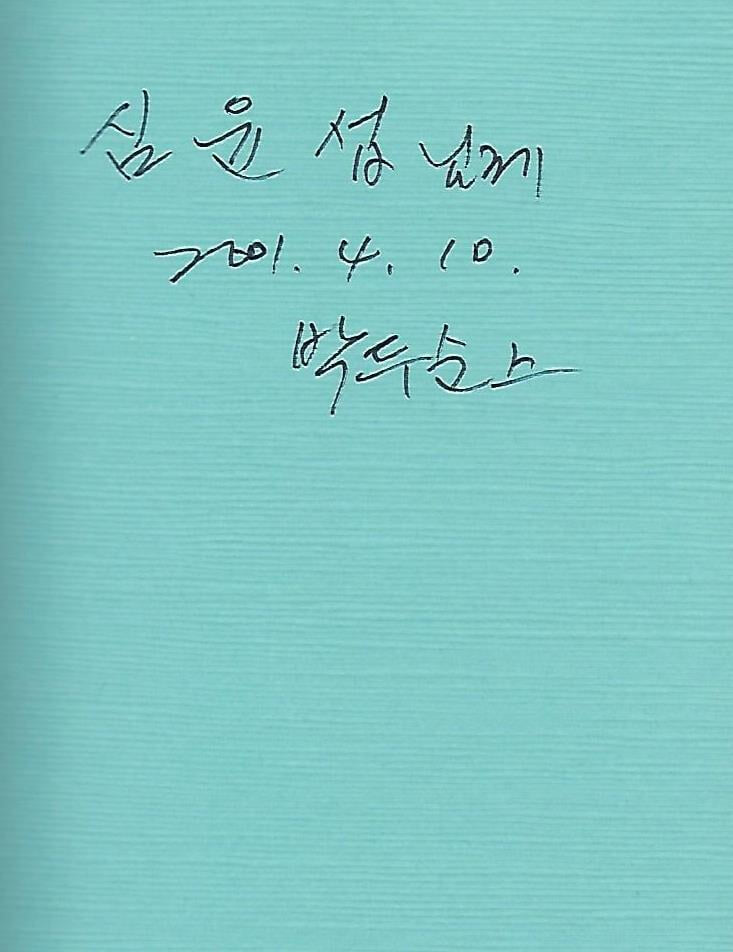 심윤섭 님께
2001. 4. 10.
박두순 드